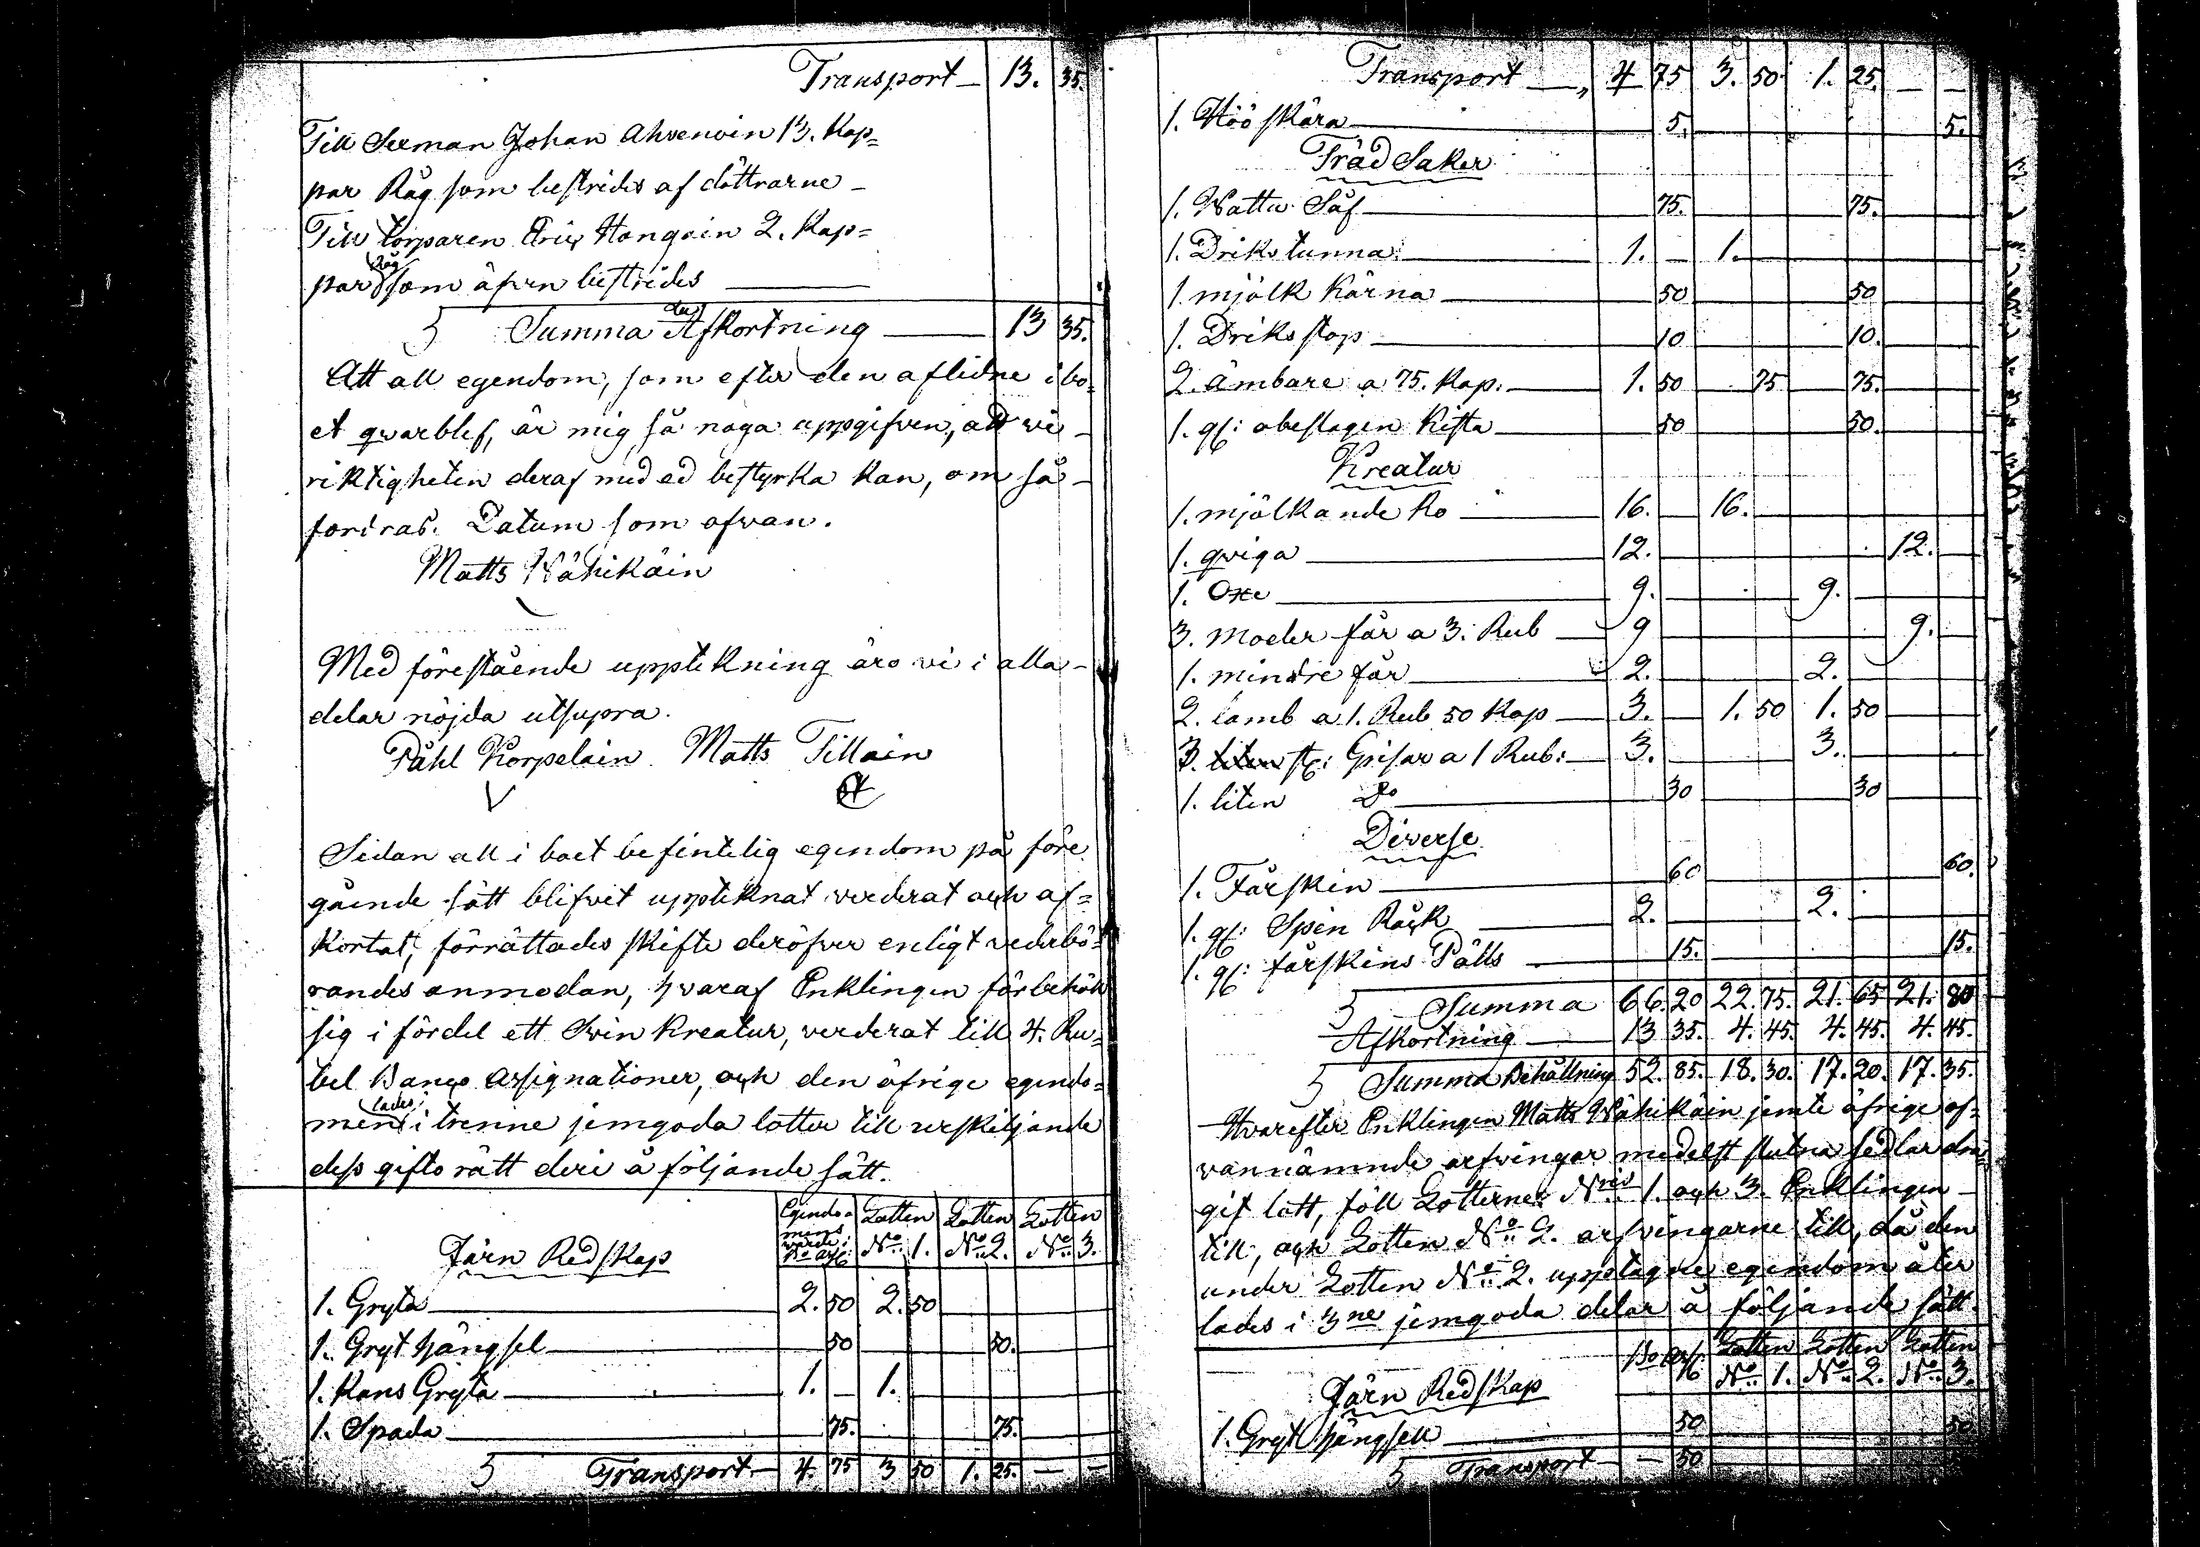 Transport 13. 35.
Till Seeman Johan Ahvenoin 13. Kap=
par Råg som bestrides af döttrarne
Till torparen Eric Hongoin 2. Kap=
par Råg som äfven bestrides
Summa Afkortning 13 35.
Att all egendom, som efter den aflidne i bo=
et qvarblef, är mig så noga uppgifven, att vi
riktigheten deraf med ed bestyrka kan, om så
fordras. Datum som ofvan.
Matts Wähikäin
Med förestående upptekning äro vi i alla
delar nöjda utsupra.
Påhl Korpelain Matts Tillain
Sidan all i boet befintelig egendom på före
gående sätt blifvit uppteknat verderat och af=
kortat, förrättades skifte deröfver enligt vederbö=
randes anmodan, hvaraf Enklingen förbehölt
sig i fördel ett Svin kreatur, verderat till 4. Ru=
bel Banco Assignationer, och den öfrige egendo=
men lades i trenne jemgoda lotter till urskiljande
dess giftorätt deri å följande sätt.
Järn Redskap Egendo=mens värde i Bo Ass: Lotten No 1. Lotten No 2. Lotten No 3.
1. Gryta 2. 50 2. 50
1. Gryt hängsel 50 50.
1. Kans Gryta 1. – 1.
1. Spada 75. 75.
Transport 4. 75 3 50 1. 25. – –
Transport 4 75 3. 50 1. 25. – –
1. Höö skära 5. 5.
Träd Saker
1. Wattu Så 75. 75.
1. Driks tunna 1. – 1.
1. mjölk Kärna 50 50
1. Driks stop 10 10.
2. ämbare a 75. Kop. 1. 50 75 75.
1. gl: obeslagen Kista 50 50.
Kreatur
1. mjölkande Ko 16. 16.
1. qviga 12. 12.
1. Oxe 9. 9.
3. moder får a 3. Rub 9 9.
1. mindre får 2. 2.
2. lamb a 1. Rub 50 Kop 3. 1. 50 1. 50
3. st: Grisar a 1 Rub: 3. 3.
1. liten Do 30 30
Diverse
1. Fårskin 60 60.
1. gl: Spin Råck 2. 2.
1. gl: fårskins Pälls 15. 15.
Summa 66. 20 22. 75. 21. 65 21. 80
Afkortning 13 35. 4. 45. 4. 45. 4. 45.
Summa Behållning 52. 85. 18. 30. 17. 20. 17. 35.
Hvarefter Enklingen Matts Wähikäin jemte öfrige of=
vannämnde arfvingar medelst slutna sedlar dra=
git lott, föll Lotterne Nris 1. och 3. Enklingen
till, och Lotten No 2. arfvingarne till, då den
under Lotten No 2. upptagne egendom åter
lades i 3ne jemgoda delar å följande sätt
Järn Redskap Bo Ass: Lotten No 1. Lotten No 2. Lotten No 3.
1. Gryt hängsell 50 50
Transport – 50